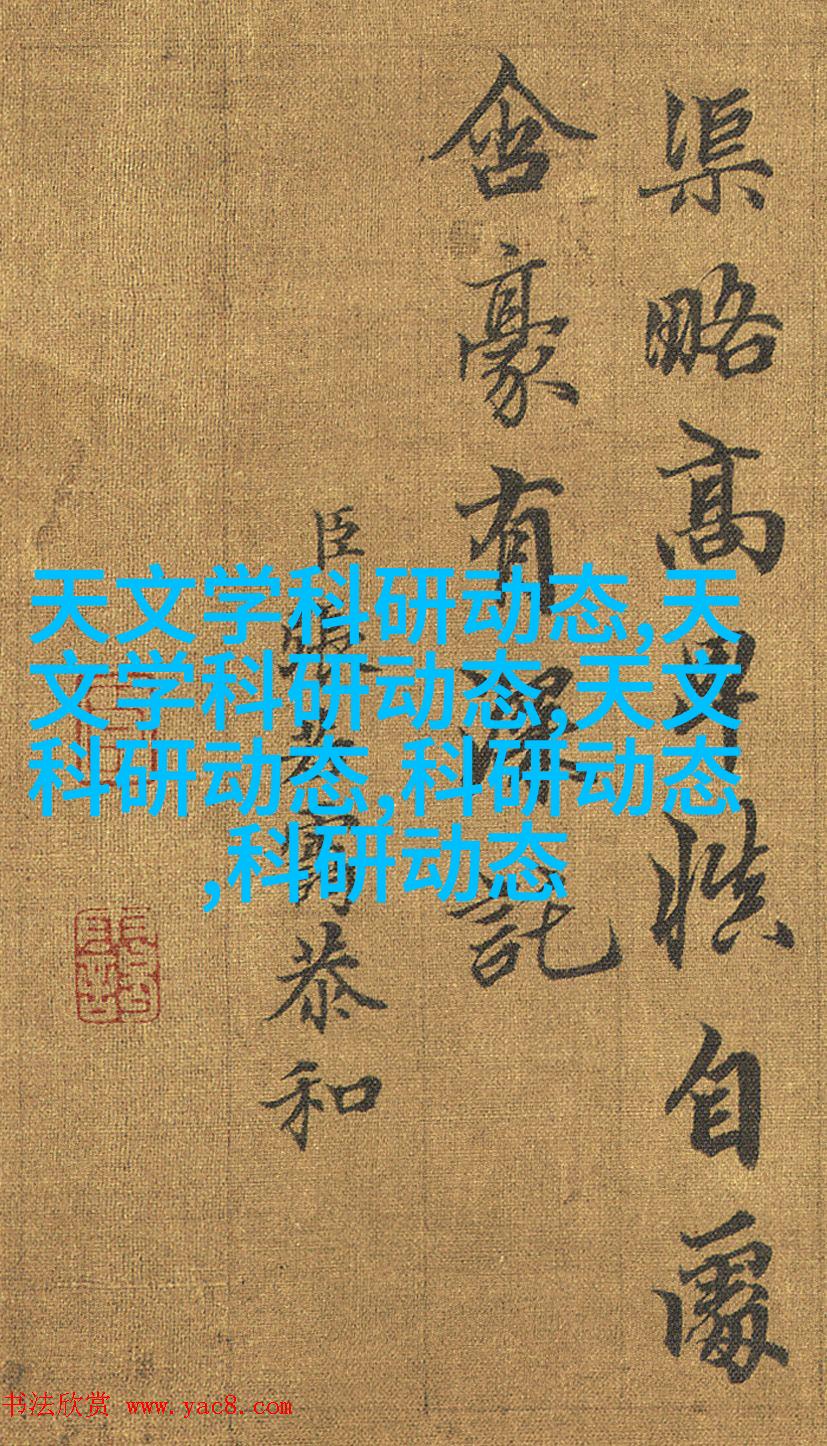 渠略高慎自處
含豪有深託
臣恭和
天文学科研动态,天
文学科研动态,天文
科研动态,科研动态
,科研动态
书法欣赏 www.yac8.com